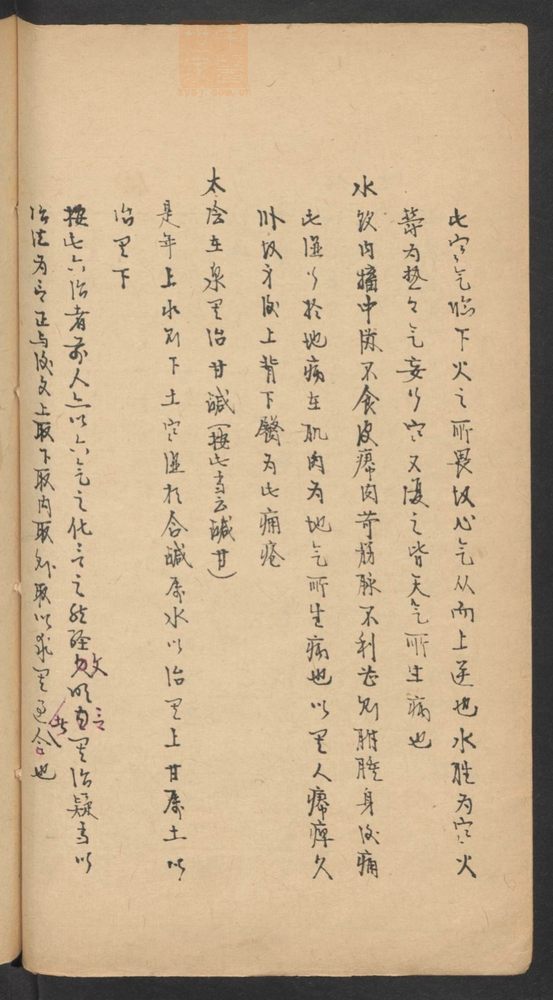 此寒气临下火之所畏故心气从而上逆也水胜为寒火
鬱为热々气妄行寒又復之皆天气所生病也
水饮内稸中滿不食皮𤸷肉苛筋脉不利甚则胕腫身後痈
此湿行於地病生肌肉为地气所生病也以其人𤸷痺久
卧故身後上背下臀为此痈疮
太陰在泉其治甘碱(按此当云碱甘)
是年上水则下土寒湿相合碱属水以治其上甘属土以
治其下
按此六治者前人亦以六气之化言之然经文明言其治疑当以
治法为言正与後文上取下取内取外取以求其適合也